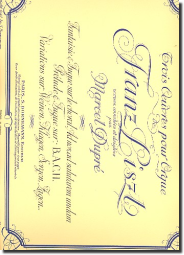 Trois Œuvres pour Orgue
Franz Liszt
par
Marcel Dupré
Fantaisie et Fugue sur le choral "Ad nos, ad salutarem undam"
Prélude et Fugue sur B.A.C.H.
Variations sur "Weinen, Klagen, Sorgen, Zagen"
PARIS, S. BORNEMANN,